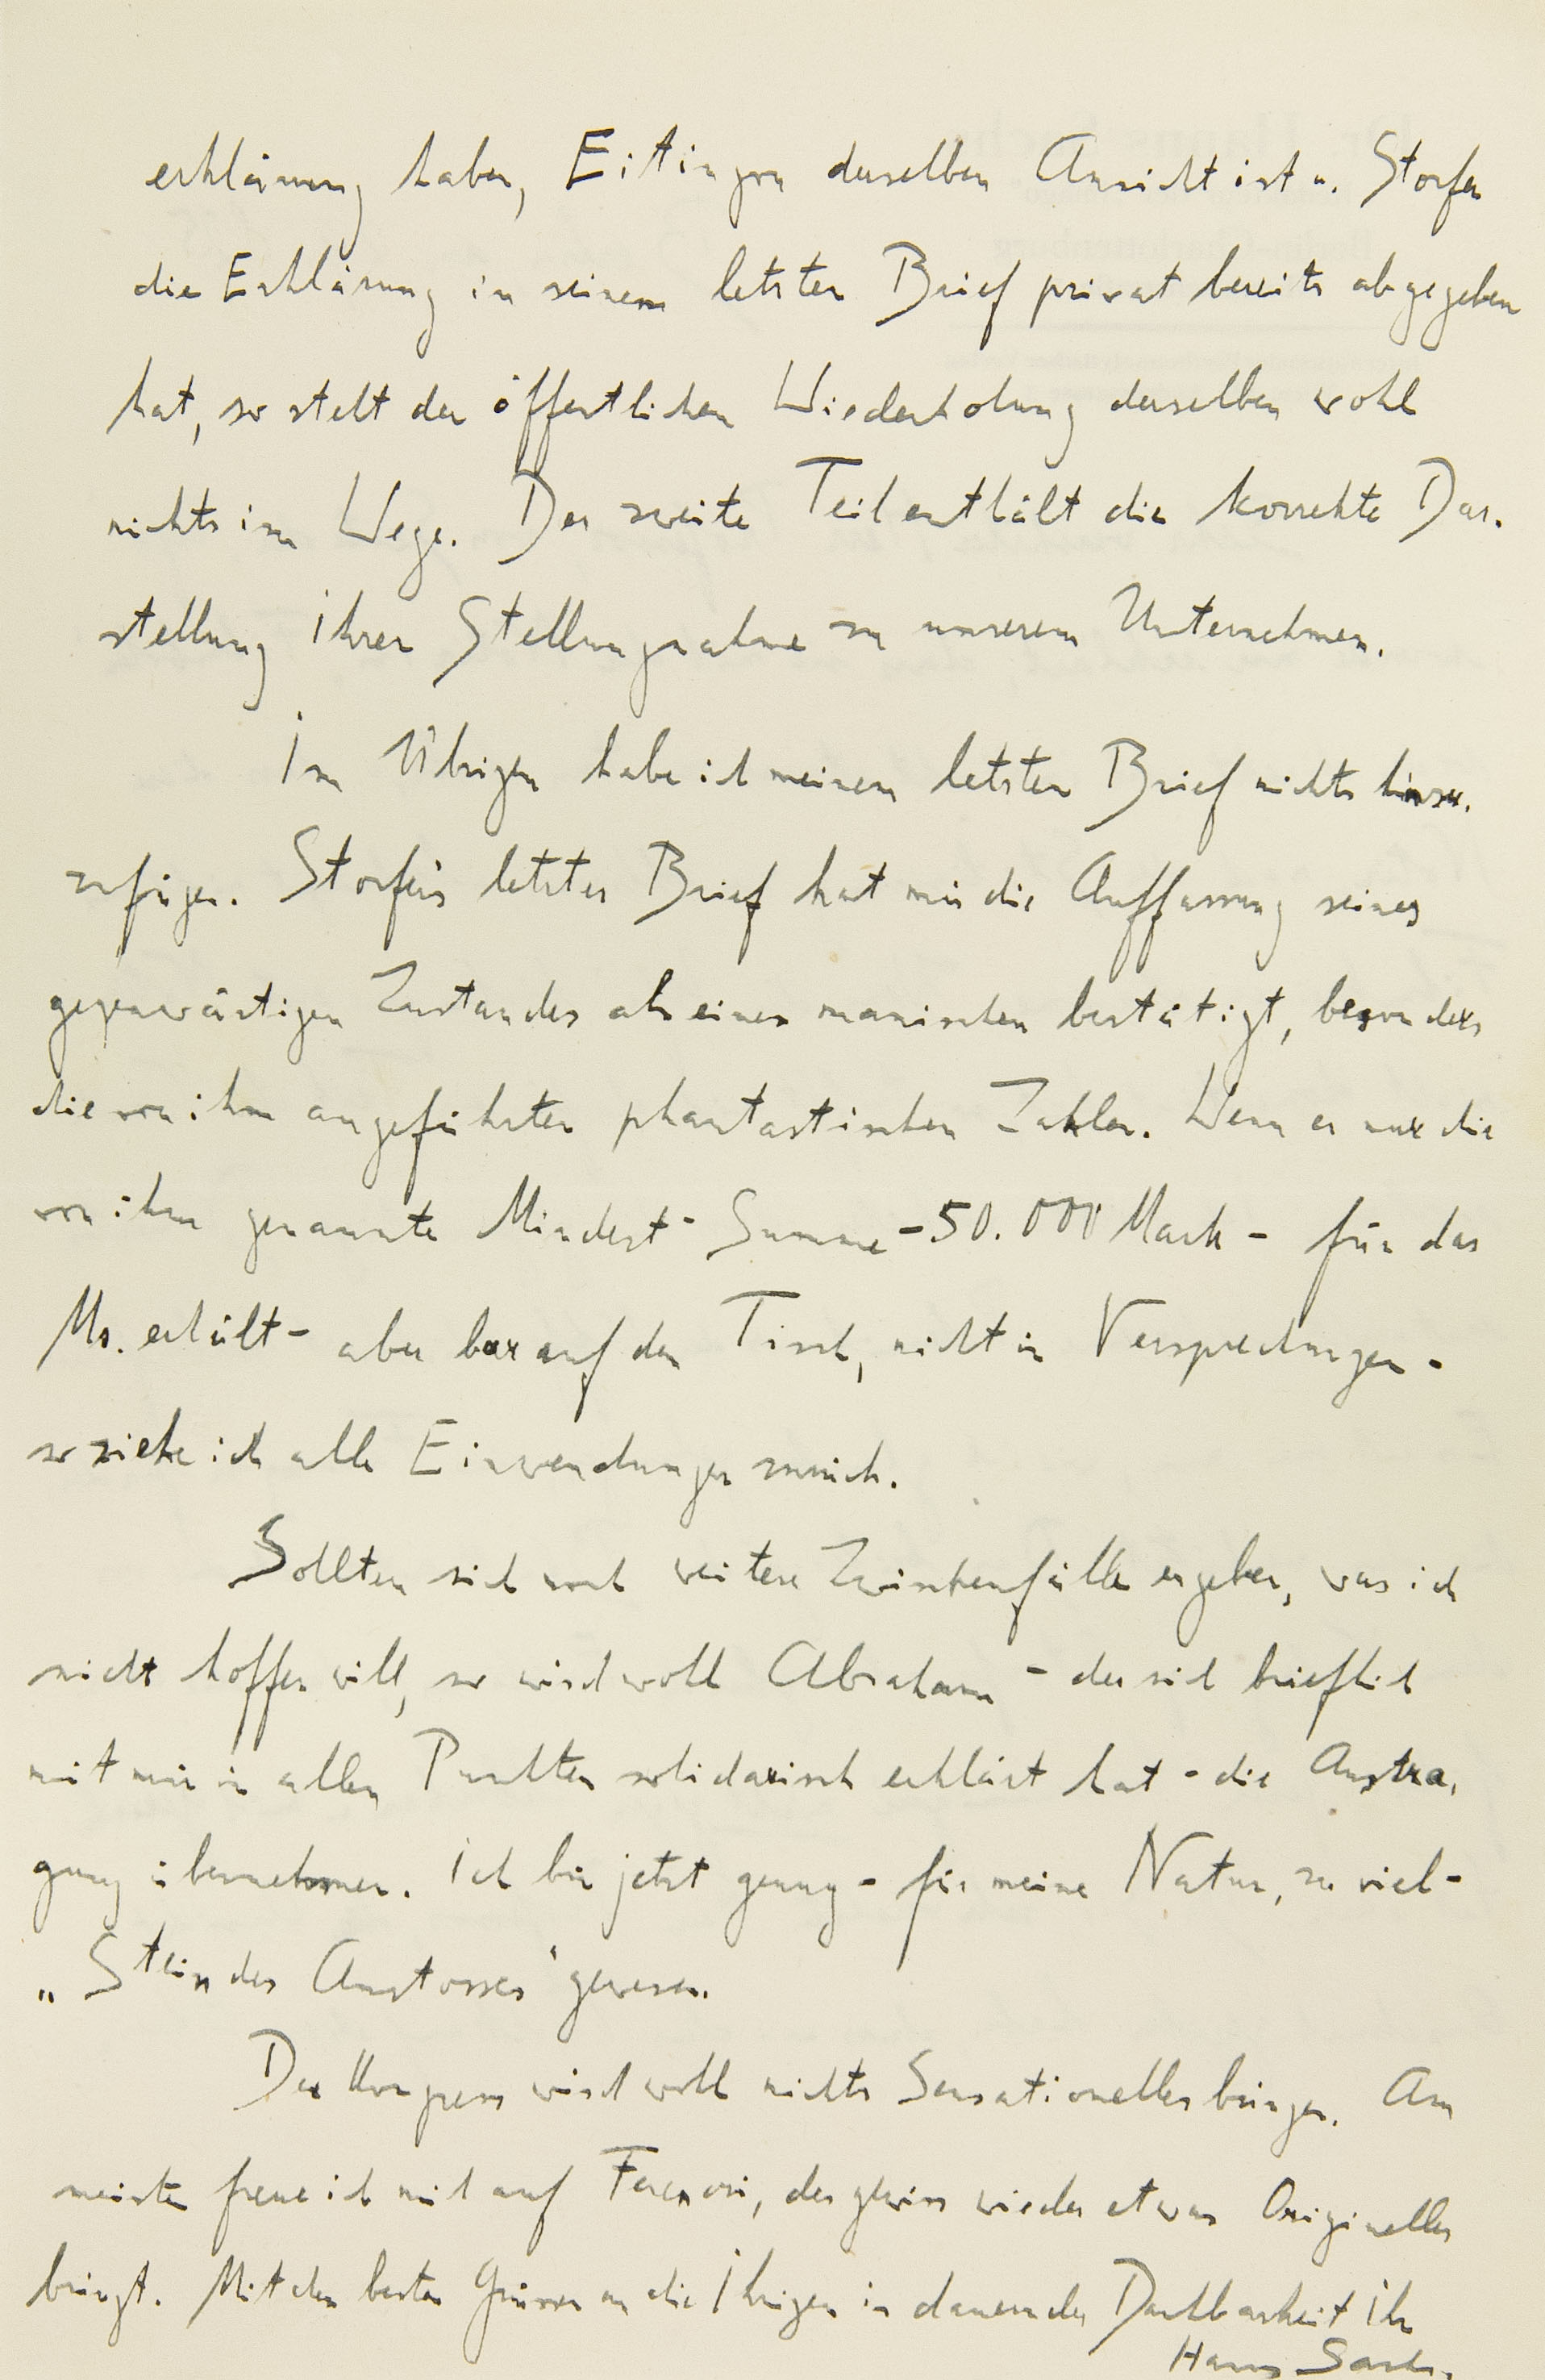 erklärung haben, Eitingon derselben Ansicht ist u. Storfer
die Erklärung in seinem letzten Brief privat bereits abgegeben
hat, so steht der öffentlichen Wiederholung derselben wohl
nichts im Wege. Der zweite Teil enthält die korrekte Dar-
stellung ihrer Stellungnahme zu unserem Unternehmen.
Im Übrigen habe ich meinem letzten Brief nichts hinzu-
zufügen. Storfers letzter Brief hat mir die Auffassung seines
gegenwärtigen Zustandes als eines manischen bestätigt, besonders
die von ihm angeführten phantastischen Zahlen. Wenn er nur die
von ihm genannte Mindest-Summe - 50.000 Mark - für das
Ms. erhält - aber bar auf den Tisch, nicht in Versprechungen -
so ziehe ich alle Einwendungen zurück.
Sollten sich noch weitere Zwischenfälle ergeben, was ich
nicht hoffen will, so wird wohl Abraham - der sich brieflich
mit mir in allen Punkten solidarisch erklärt hat - die Austra-
gung übernehmen. Ich bin jetzt genug - für meine Natur, zu viel -
„Stein des Anstosses" gewesen.
Der Kongress wird wohl nichts Sensationelles bringen. Am
meisten freue ich mich auf Ferenczi, der gewiss wieder etwas Originelles
bringt. Mit den besten Grüssen an die Ihrigen in dauernder Dankbarkeit Ihr
Hanns Sachs.